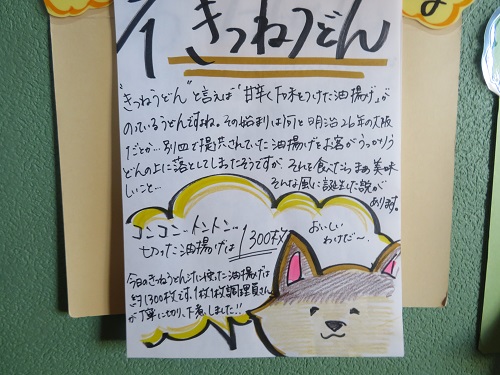 7/1 きつねうどん
"きつねうどん"と言えば「甘辛く下味をつけた油揚げ」が
のっているうどんですね。その始まりは何と明治26年の大阪
だとか…別皿で提供されていた油揚げをお客がうっかりう
どんの上に落としてしまったそうですが、それを食べたらまぁ美味
しいこと… そんな風に誕生した説が
あります。
コンコン…トントン…
切った油揚げは 1300枚
おいしい
わけだ〜。
今日のきつねうどん汁に使った油揚げは
約1300枚です。1枚1枚調理員さん
が丁寧に切り、下煮しました!!